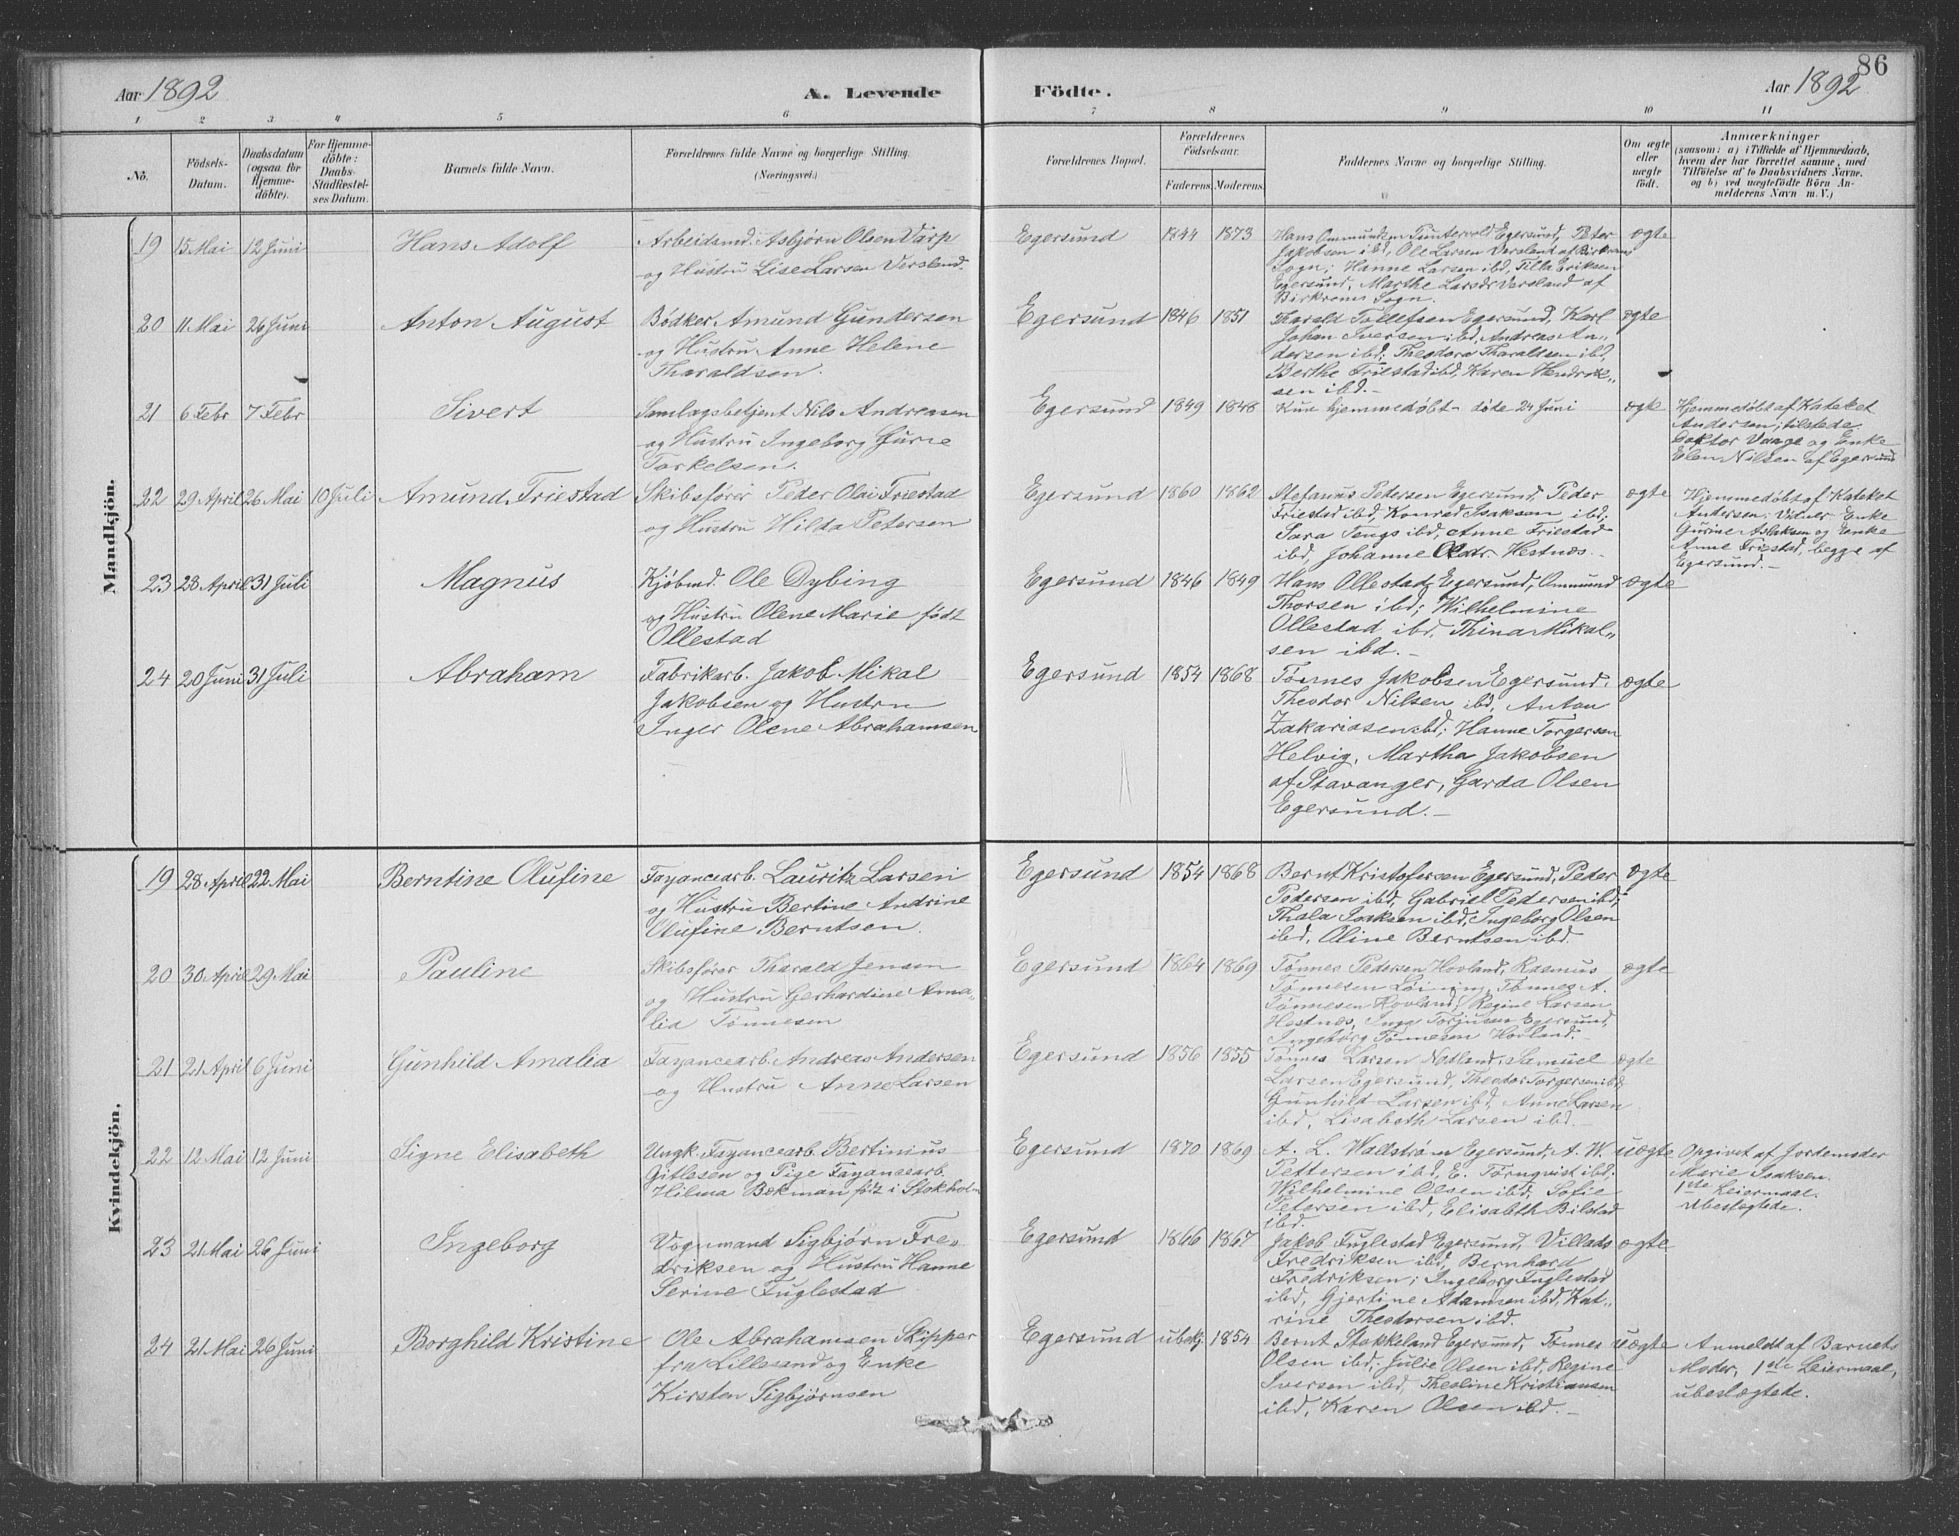 86
Aar 1892
A. Levende
Födte.
Aar 1892
1 2 3 4 5 6 7 8 9 10 11
No.
Födsels-
Datum.
Daabsdatum
(ogsaa for
Hjemme-
döbte).
For Hjemme-
döbte:
Daabs-
Stadfæstel-
ses Datum.
Barnets fulde Navn.
Forældrenes fulde Navne og borgerlige Stilling.
(Næringsvei.)
Forældrenes Bopæl.
Forældrenes
Födselsaar.
Faderens. Moderens.
Faddernes Navne og borgerlige Stilling.
Om ægte
eller
uægte
födt.
Anmærkninger
(saasom: a) i Tilfælde af Hjemmedaab,
hvem der har forrettet samme, med
Tilföielse af to Daabsvidners Navne.
og b) ved uægtefödte Börn An-
melderens Navn m. V.)
Mandkjön.
19 15 Mai 12 Juni Hans Adolf
Arbeidsmd. Asbjørn Olsen Varp
og Hustru Lise Larsen Versland.
Egersund 1844 1873
Hans Ommundsen Tuntervold Egersund, Peter
Jakobsen ibd, Ole Larsen Versland af Birkrem
Sogn; Hanne Larsen ibd, Tilla Eriksen
Egersund, Marthe Larsdr Versland af
Birkrems Sogn.
ægte
20 11 Mai 26 Juni Anton August
Bødker Amund Gundersen
og Hustru Anne Helene
Tharaldsen.
Egersund 1846 1851
Tharald Tollefsen Egersund, Karl
Johan Iversen ibd, Andreas An„
dersen ibd; Theodora Tharaldsen ibd,
Berthe Friestad ibd, Karen Hendrik„
sen ibd.-
ægte
21 6 Febr 7 Febr Sivert
Samlagsbetjent Nils Andreasen
og Hustru Ingeborg Gurie
Torkelsen.
Egersund 1849 1848
Kun hjemmedøbt - døde 24 Juni
ægte
Hjemmedøbt af Kateket
Andersen; tilstede
Doktor Vaage og Enke
Elen Nilsen af Egersund
22 29 April 26 Mai 10 Juli Amund Friestad
Skibsfører Peder Olai Friestad
og Hustru Hilda Petersen
Egersund 1860 1862
Stefanus Petersen Egersund, Peder
Friestad ibd, Konrad Isaksen ibd;
Sara Tengs ibd, Anne Friestad
ibd, Johanne Olsdr. Hestnæs.-
ægte
Hjemmedøbt af Kateket
Andersen; Vidner Enke
Gurine Aslaksen og Enke
Anne Friestad, begge af
Egersund.-
23 28 April 31 Juli Magnus
Kjøbmd. Ole Dybing
og Hustru Olene Marie født
Ollestad
Egersund 1846 1849
Hans Ollestad Egersund, Ommund
Thorsen ibd; Wilhelmine
Ollestad ibd, Thina Mikal„
sen ibd.-
ægte
24 20 Juni 31 Juli Abraham
Fabrikarb. Jakob Mikal
Jakobsen og Hustru
Inger Olene Abrahamsen
Egersund 1854 1868
Tønnes Jakobsen Egersund,
Theodor Nilsen ibd, Anton
Zakariasen ibd; Hanne Torgersen
Helvig, Martha Jakobsen
af Stavanger, Garda Olsen
Egersund.-
ægte
Kvindekjön.
19 28 April 22 Mai Berntine Olufine
Fayancearb. Lauritz Larsen
og Hustru Bertine Andrine
Olufine Berntsen.
Egersund 1854 1868
Bernt Kristofersen Egersund, Peder
Pedersen ibd, Gabriel Pedersen ibd;
Thala Isaksen ibd, Ingeborg Olsen
ibd, Oline Berntsen ibd.
ægte
20 30 April 29 Mai Pauline
Skibsfører Tharald Jensen
og Hustru Gerhardine Ama„
lia Tønnesen
Egersund 1864 1869
Tønnes Pedersen Hovland, Rasmus
Tønnesen Tønnes A.
Tønnesen Hovland; Regine Larsen
Hestnæs, Inga Torjusen Egersund,
Ingeborg Tønnesen Hovland.
ægte
21 21 April 6 Juni Gunhild Amalia
Fayancearb. Andreas Andersen
og Hustru Anne Larsen
Egersund 1856 1855
Tønnes Larsen Netland, Samuel
Larsen Egersund, Theodor Torgersen ibd;
Gunhild Larsen ibd, Anne Larsen
ibd, Lisabeth Larsen ibd.-
ægte
22 12 Mai 12 Juni Signe Elisabeth
Ungk. Fayancearb. Bertinius
Gitlesen og Pige Fayancearb.
Hilma Bekman født i Stokholm
Egersund 1870 1869
A. L. Wallstrøm Egersund, A. W.
Pettersen ibd, E. Törnqvist ibd;
Wilhelmine Olsen ibd, Sofie
Petersen ibd, Elisabeth Bilstad
ibd.
uægte
Opgivet af Jordemoder
Marie Isaksen.
1ste Leiermaal.
ubeslægtede.
23 21 Mai 26 Juni Ingeborg
Vognmand Sigbjørn Fre„
driksen og Hustru Hanne
Serine Fuglestad
Egersund 1866 1867
Jakob Fuglestad Egersund, Villads
Fredriksen ibd, Bernhard
Fredriksen; Ingeborg Fuglestad
ibd, Gjertine Adamsen ibd, Kat„
rine Theodorsen ibd.
ægte
24 21 Mai 26 Juni Borghild Kristine
Ole Abrahamsen Skipper
fra Lillesand og Enke
Kirsten Sigbjørnsen
Egersund ubekj 1854
Bernt Stokkeland Egersund, Tønnes
Olsen ibd; Julie Olsen ibd, Regine
Iversen ibd, Theoline Kristiansen
ibd, Karen Olsen ibd.-
uægte
Anmeldt af Barnets
Moder, 1ste Leiermaal,
ubeslægtede.